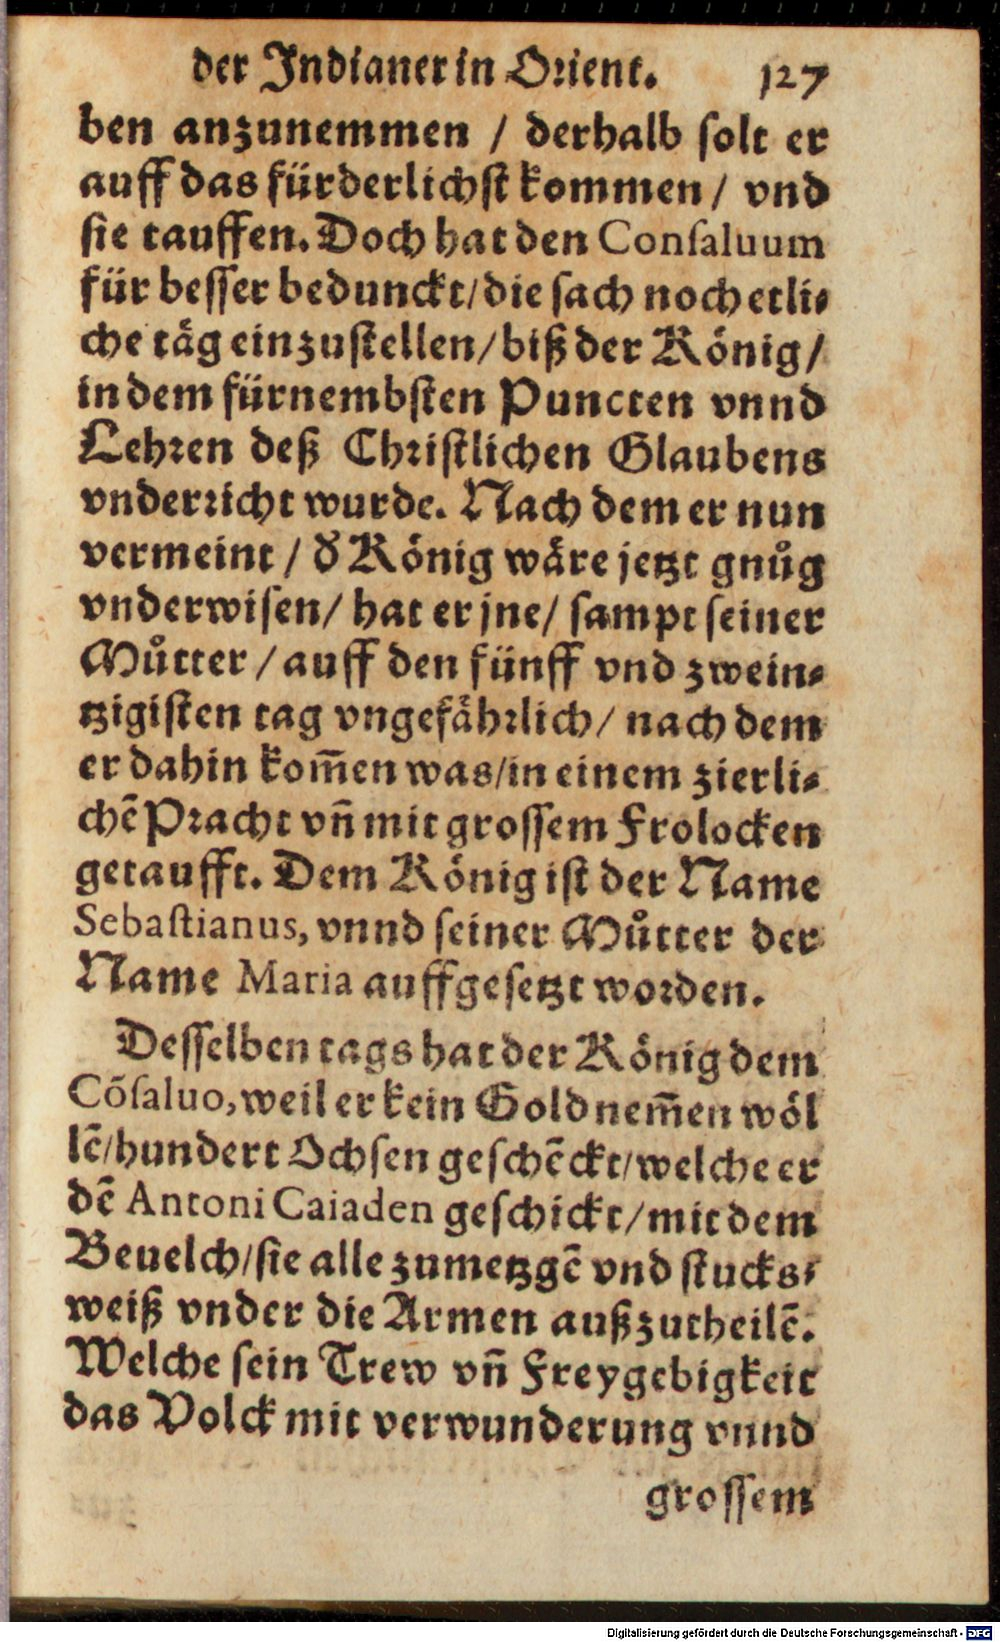 der Indianer in Orient. 127
ben anzunemmen / derhalb solt er
auff das fürderlichst kommen / vnd
sie tauffen. Doch hat den Consaluum
für besser bedunckt / die sach noch etli-
che täg einzustellen / biß der König /
in dem fürnembsten Puncten vnnd
Lehren deß Christlichen Glaubens
vnderricht wurde. Nach dem er nun
vermeint / d̕ König wäre jetzt gnůg
vnderwisen / hat er jne / sampt seiner
Můtter / auff den fünff vnd zwein-
tzigisten tag vngefährlich / nach dem
er dahin kom̄en was / in einem zierli-
chē Pracht vn̄ mit grossem Frolocken
getaufft. Dem König ist der Name
Sebastianus, vnnd seiner Můtter der
Name Maria auffgesetzt worden.
Desselben tags hat der König dem
Cōsaluo, weil er kein Gold nem̄en wöl
lē / hundert Ochsen geschēckt / welche er
dē Antoni Caiaden geschickt / mit dem
Beuelch / sie alle zumetzgē vnd stucks-
weiß vnder die Armen außzutheilē.
Welche sein Trew vn̄ Freygebigkeit
das Volck mit verwunderung vnnd
grossem
Digitalisierung gefördert durch die Deutsche Forschungsgemeinschaft - DFG